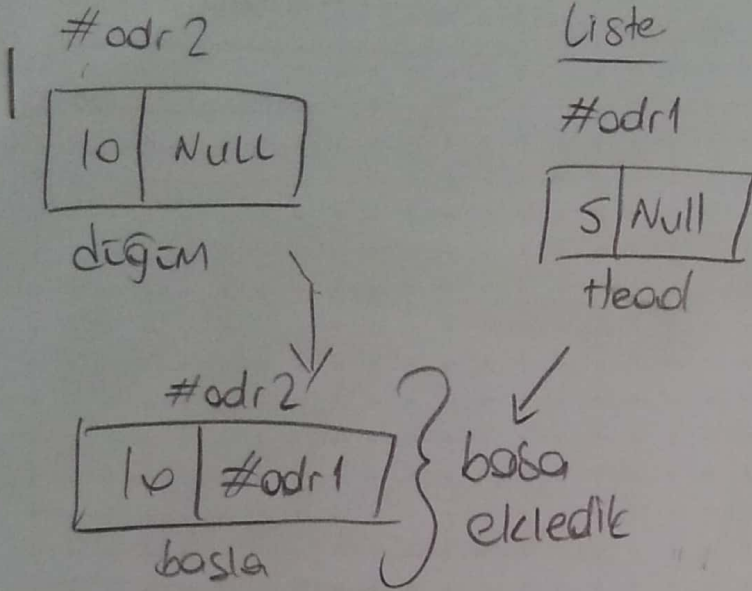 #adr2
10 NULL
düğüm
Liste
#adr1
5 Null
Head
#adr2
10 #adr1
basla
basa
ekledik